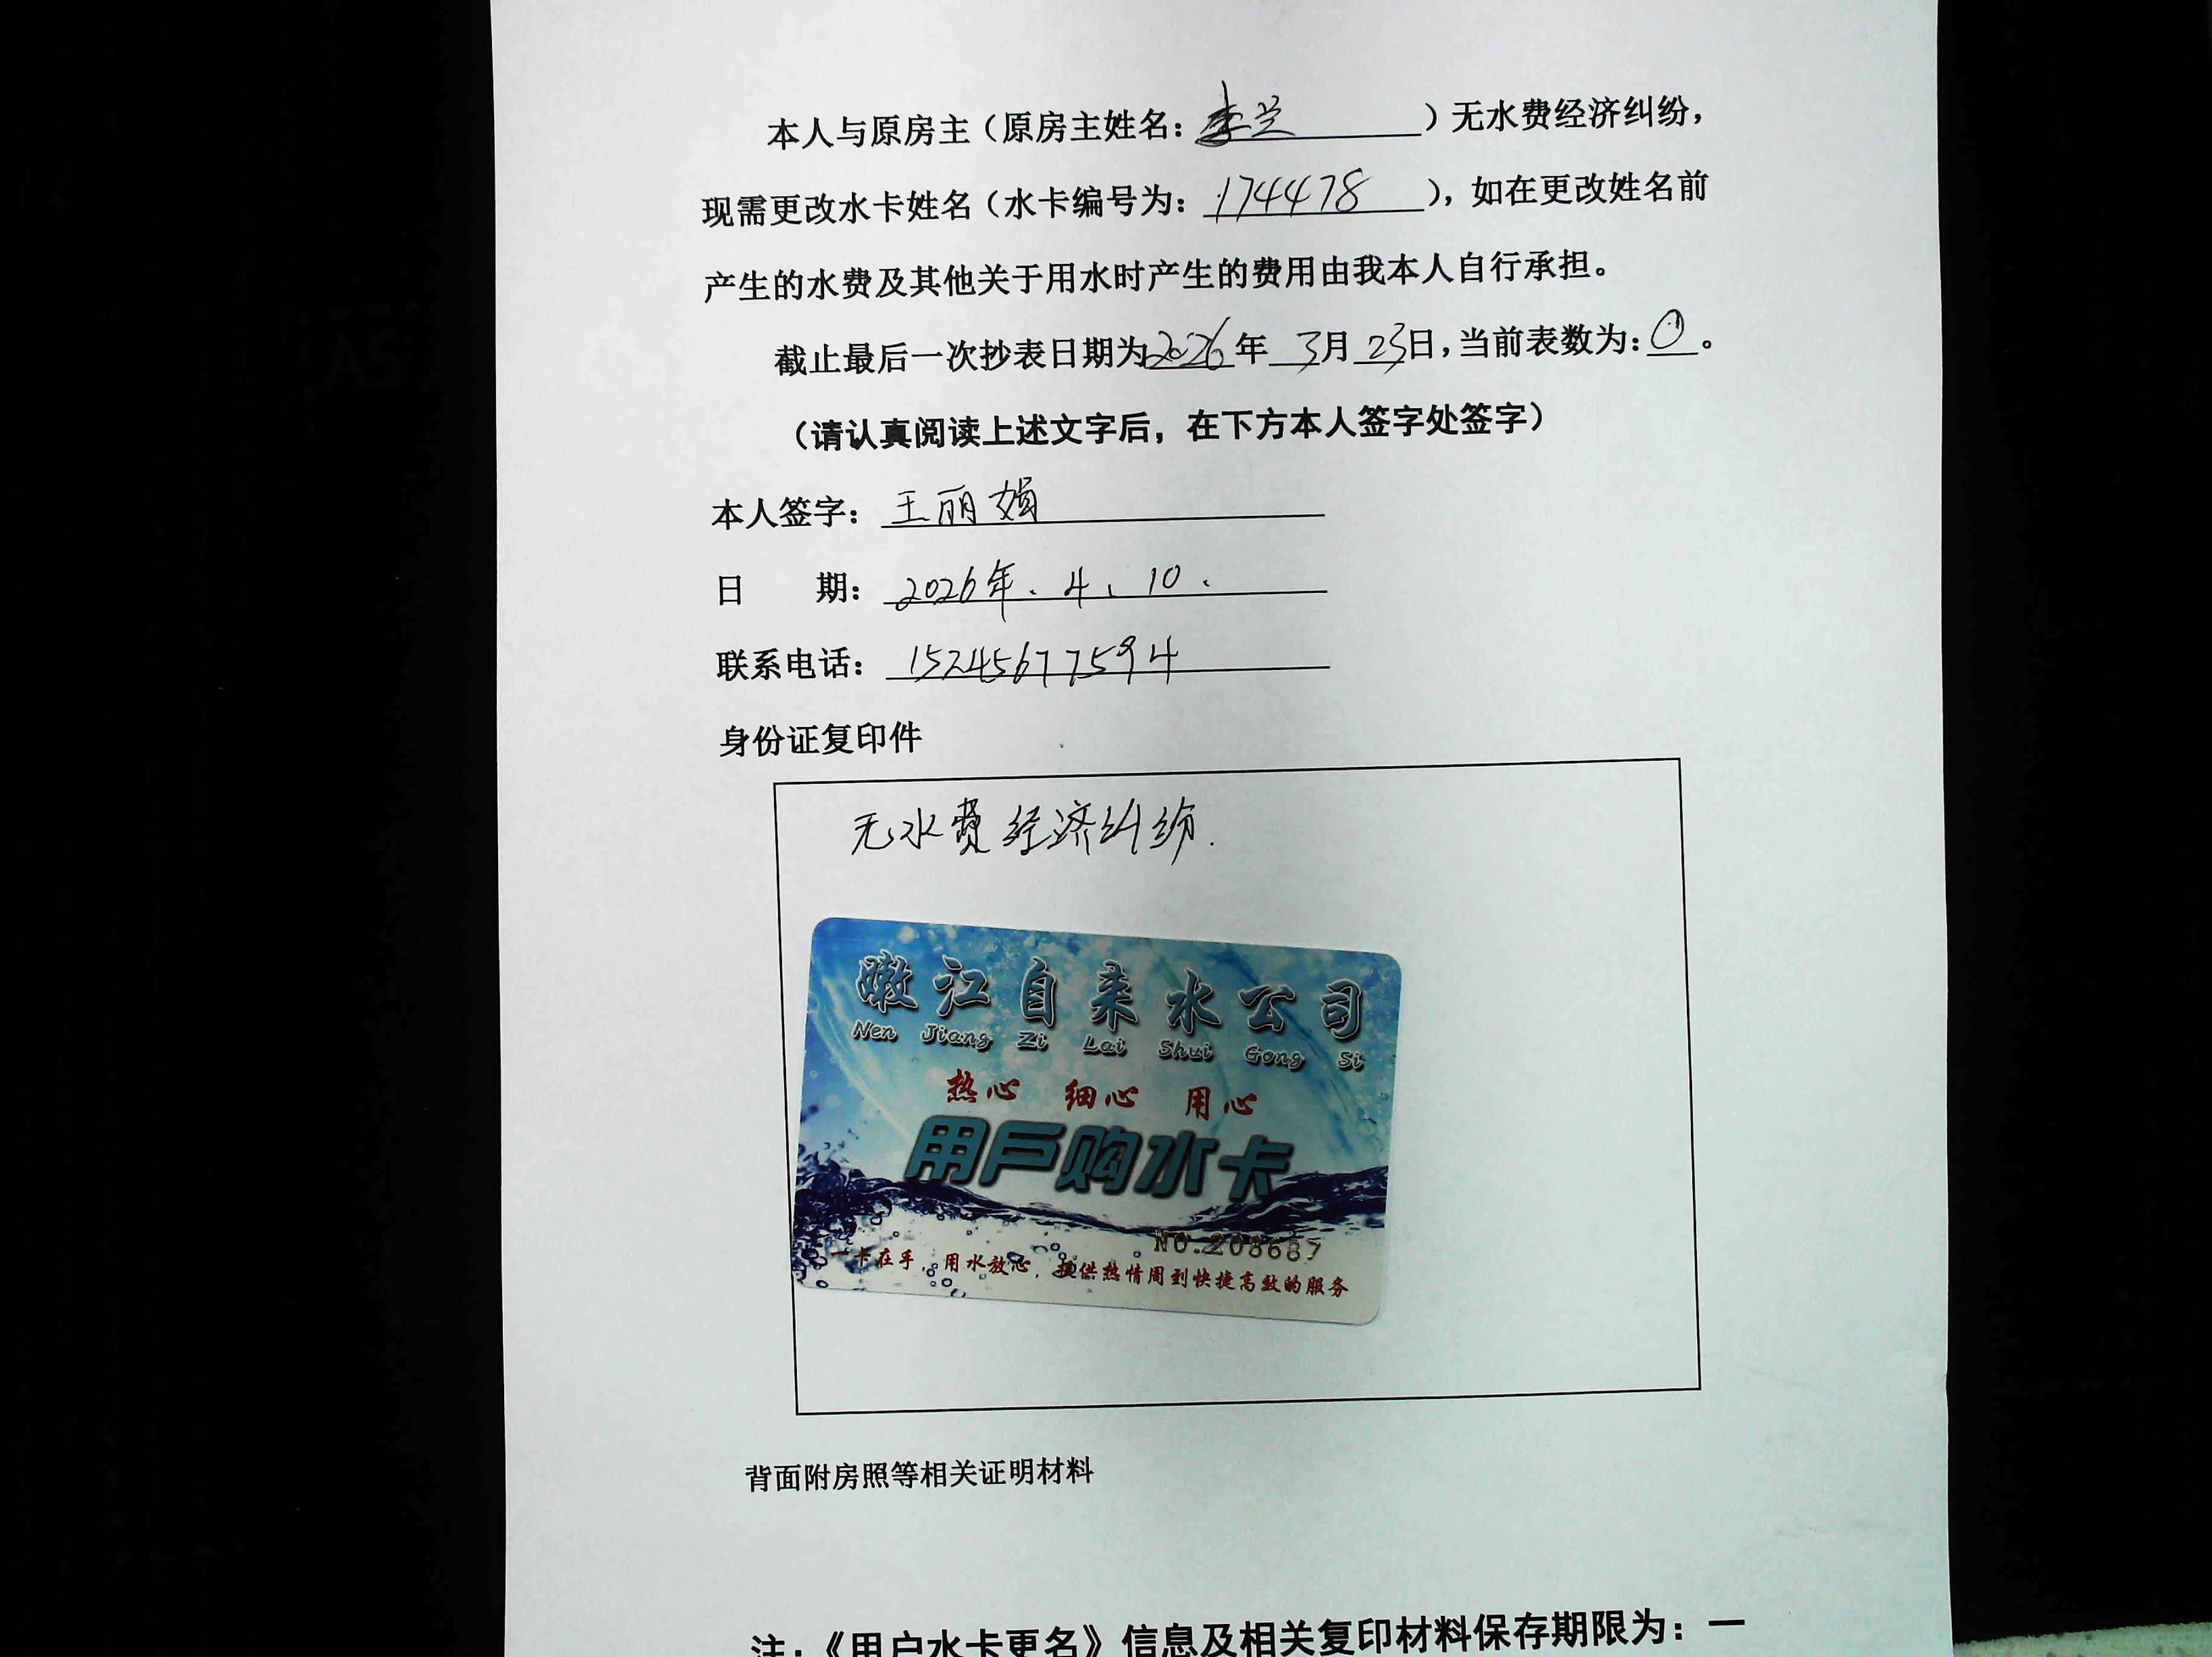 本人与原房主（原房主姓名：李兰）无水费经济纠纷，
现需更改水卡姓名（水卡编号为：174478），如在更改姓名前
产生的水费及其他关于用水时产生的费用由我本人自行承担。
截止最后一次抄表日期为2026年3月23日，当前表数为：0。
（请认真阅读上述文字后，在下方本人签字处签字）
本人签字：王丽娟
日 期：2026年.4、10.
联系电话：15245677594
身份证复印件
无水费经济纠纷.
嫩江自来水公司
Nen Jiang Zi Lai Shui Gong Si
热心 细心 用心
用户购水卡
NO.208687
一卡在手，用水放心，提供热情周到快捷高效的服务
背面附房照等相关证明材料
注：《用户水卡更名》信息及相关复印材料保存期限为：一